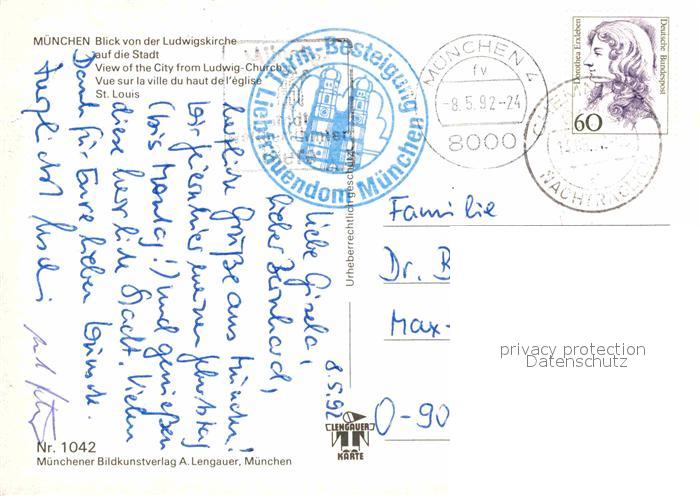 MÜNCHEN Blick von der Ludwigskirche
auf die Stadt
View of the City from Ludwig-Church
Vue sur la ville du haut de l'église
St. Louis
Turm-Besteigung
Liebfrauendom München
MÜNCHEN 4
fv
-8.5.92-24
8000
NACHTRÄGLICH
Dorothea Erxleben
Deutsche Bundespost
60
8.5.92
Liebe Gisela,
lieber Bernhard,
herzliche Grüße aus München!
Wir feiern hier meinen Geburtstag
(bis Montag!) und genießen
diese herrliche Stadt. Vielen
Dank für Eure lieben Wünsche.
Herzlichst
Urheberrechtlich geschützt
Familie
Dr. B
Max-
O-90
privacy protection
Datenschutz
LENGAUER
KARTE
Nr. 1042
Münchener Bildkunstverlag A. Lengauer, München